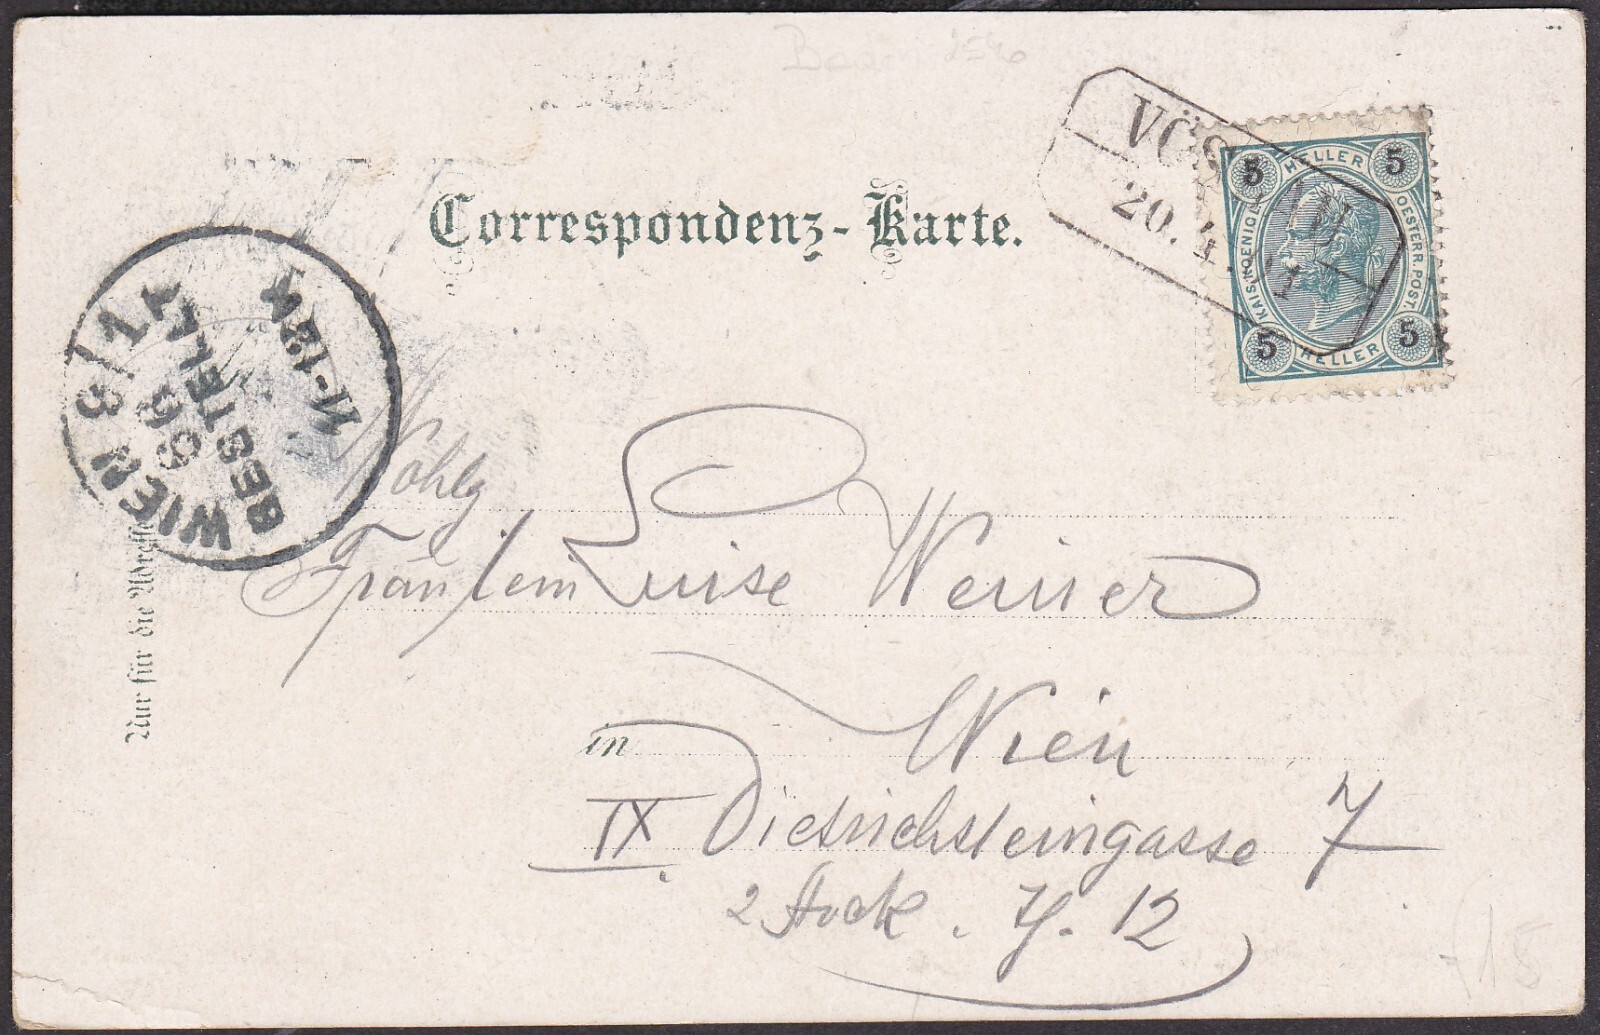 Baden
Correspondenz-Karte.
VÖSLAU
20. 4.
5 HELLER 5
KAIS. KOENIGL. OESTERR. POST.
5 HELLER 5
WIEN 9/1
BESTELLT
Nur für die Adresse
Wohlg
Fräulein Luise Weiner
in Wien
IX. Dietrichsteingasse 7
2 Stock. Th. 12
15